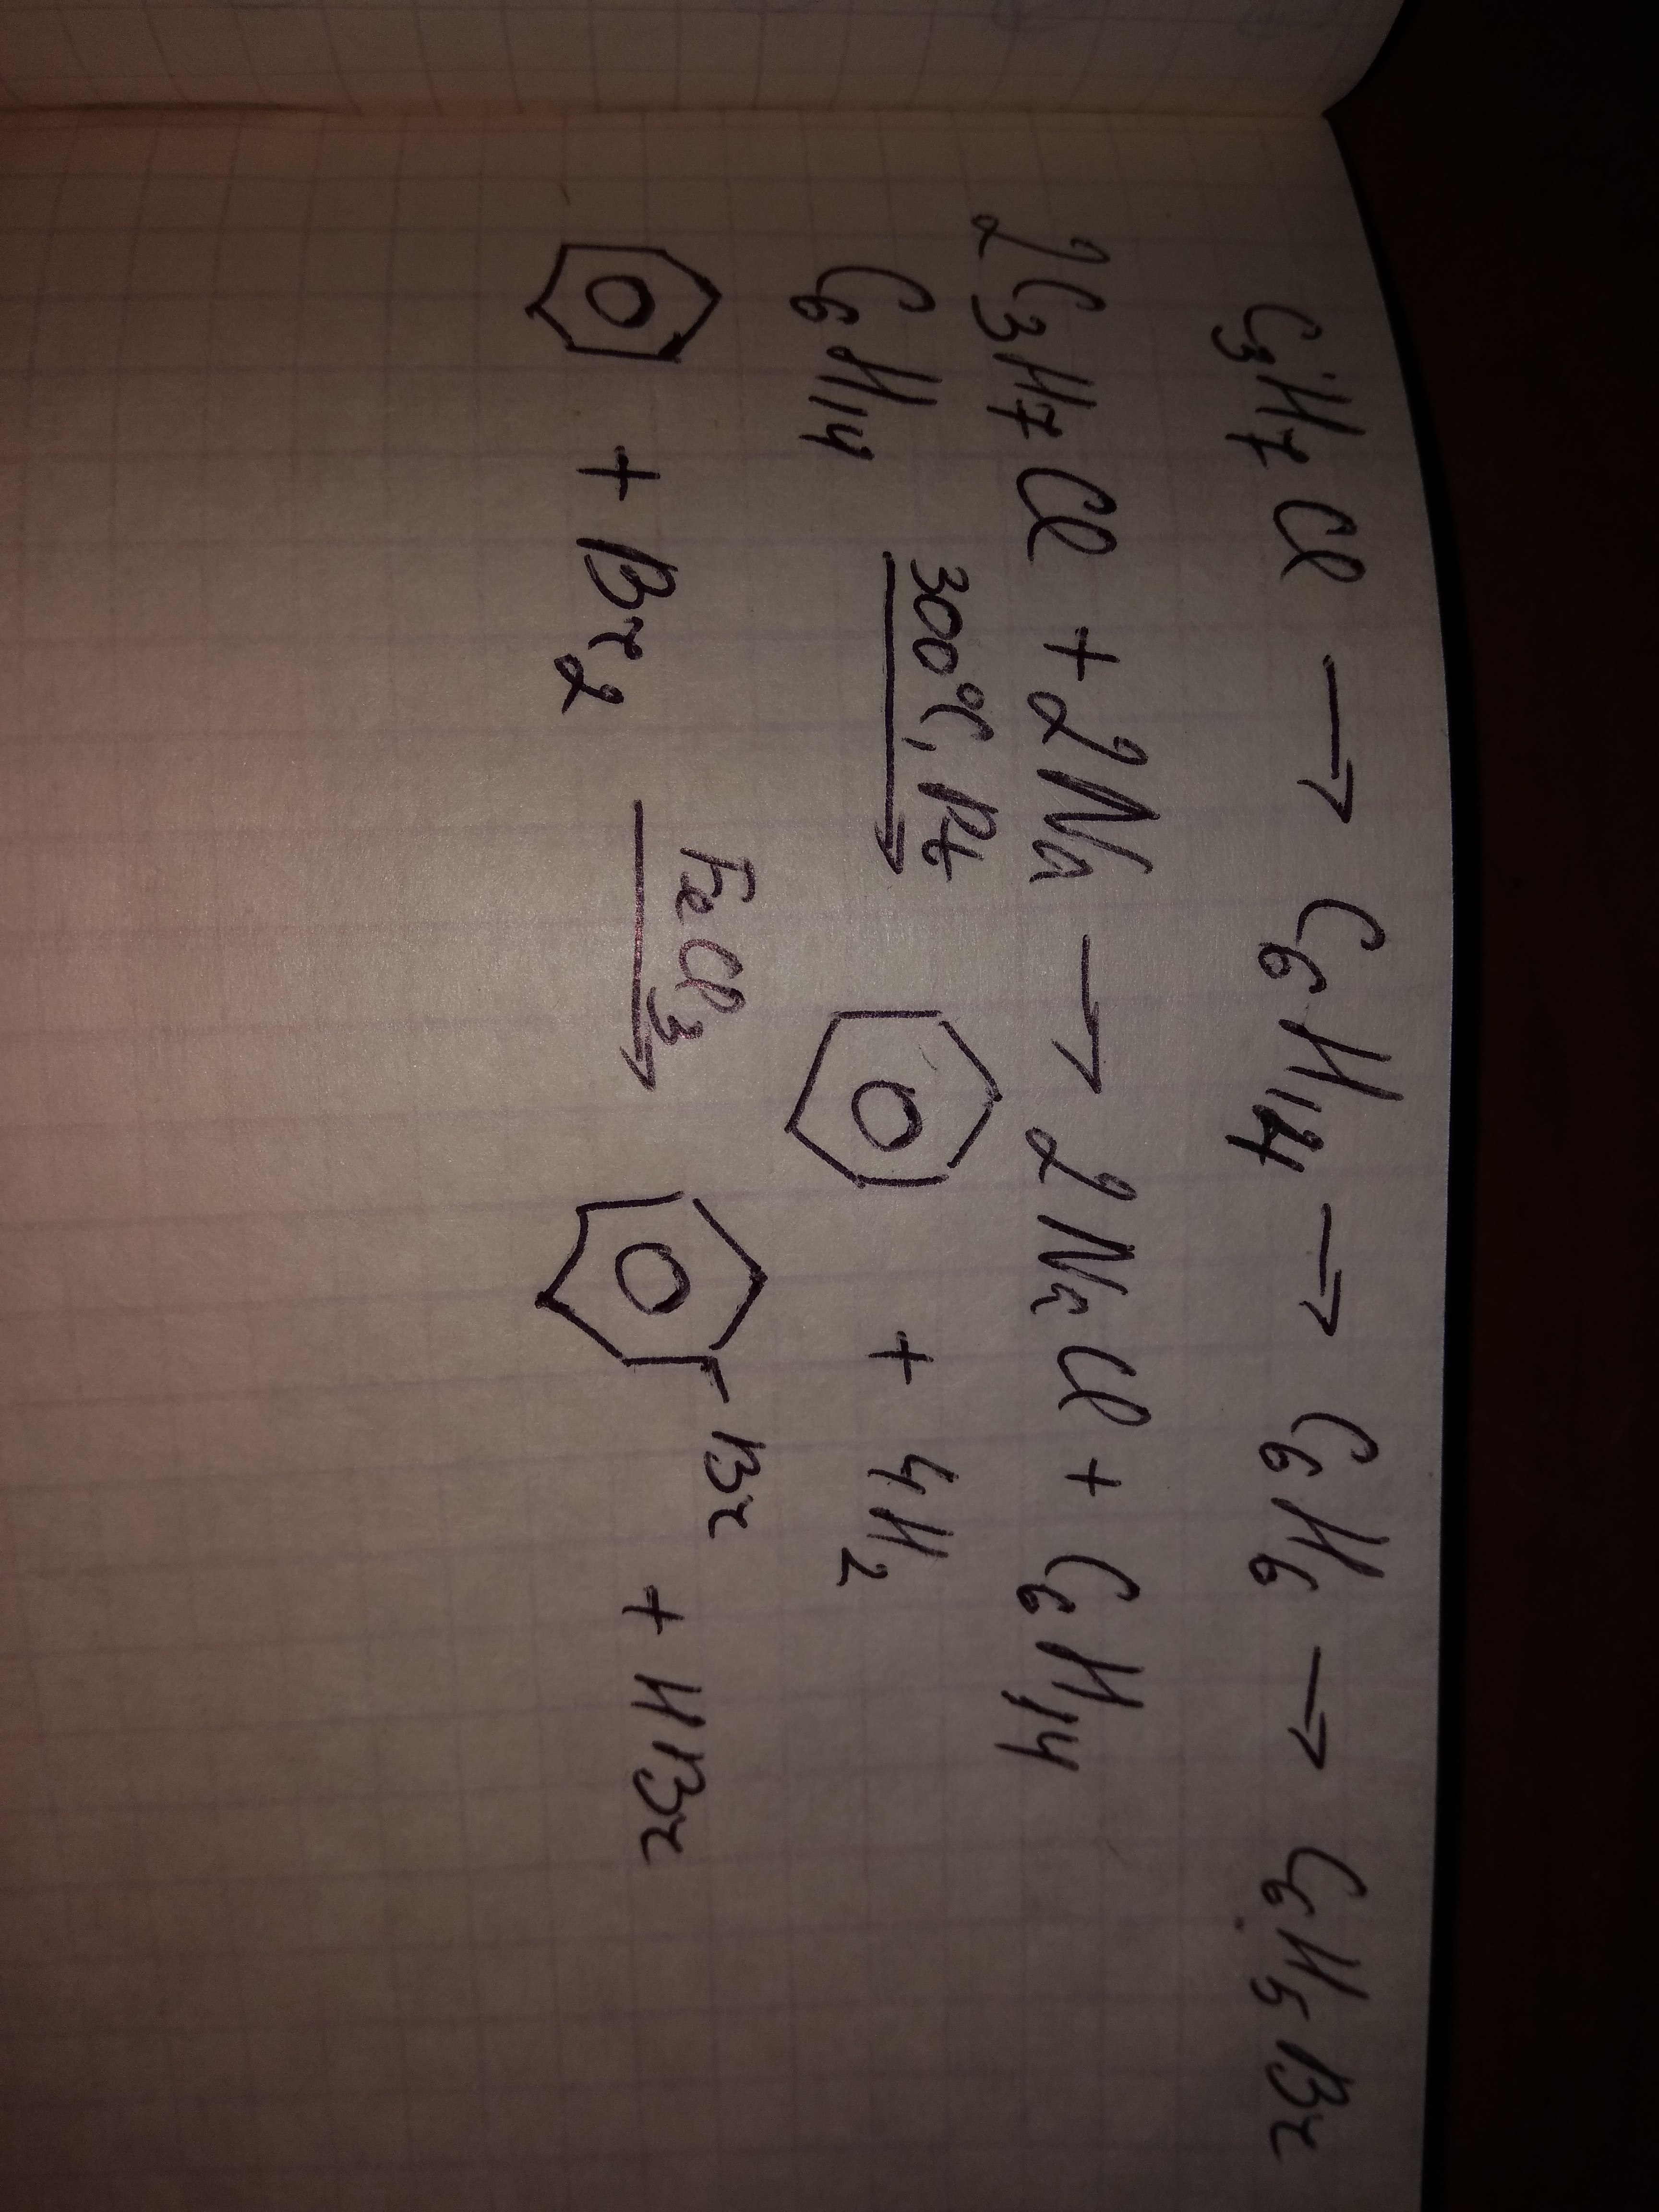 C₃H₇Cl → C₆H₁₄ → C₆H₆ → C₆H₅Br
2C₃H₇Cl + 2Na → 2NaCl + C₆H₁₄
C₆H₁₄ 300°C, Pt → + 4H₂
+ Br₂ FeCl₃ → Br + HBr